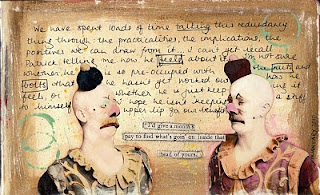 We have spent loads of time talking this redundancy
thing through - the practicalities, the implications, the
positives we can draw from it. I can't get recall
Patrick telling me how he feels about it. I'm not sure
whether he is so pre-occupied with the facts and
bolts that he hasn't got worked out how he
feels or whether he is just keeping it
to himself. I hope he isn't keeping a stiff
upper lip for our
I'd give a month's
pay to find what's goin' on inside that
head of yours.